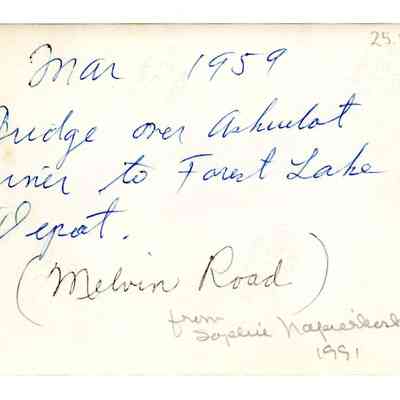 25.
Mar 1959
Bridge over Ashuelot
River to Forest Lake
Depot.
(Melvin Road)
from
Sophie
1991